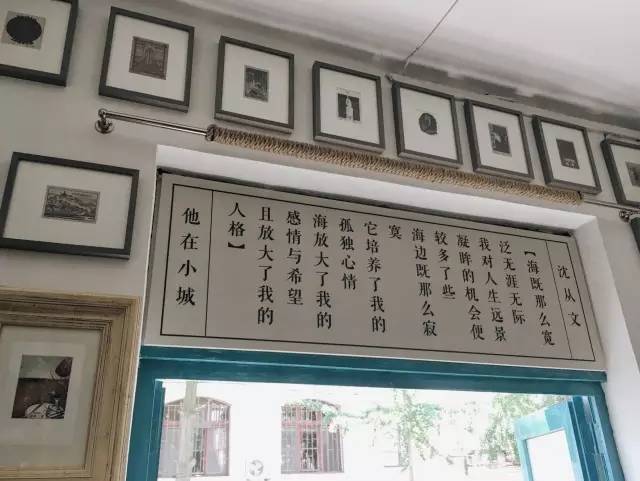 沈从文
【海既那么宽
泛无涯无际
我对人生远景
凝眸的机会便
较多了些
海边既那么寂
寞
它培养了我的
孤独心情
海放大了我的
感情与希望
且放大了我的
人格】
他在小城